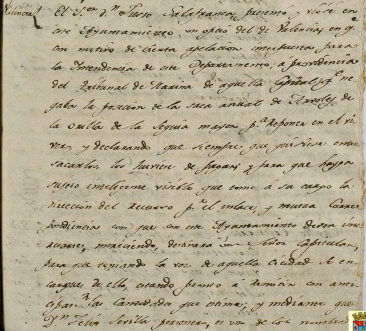 Valencia
El S.or D.n Justo Salafranca, presentó, y vióse en
este Ayuntamiento un oficio del de Valencia, en q.e
con motivo de cierta apelacion interpuesta para
la Intendencia de este Departamento, a providencia
del Tribunal de Marina de aquella Capital q.e ne
gaba la de la saca anual de Arboles de
la orilla de la Sequia mayor p.a Reponer en el vi
ver, y declarando que siempre, que
sacarlos, los de pagar, y para que haya
sujeto inteligente visible que tome a su cargo la
direccion del recurso p.r el enlace, y mutua Corres
pondencia con que con este Ayuntamiento deven
destinara un Señor Capitular,
para que tomando la voz de aquella Ciudad se en
cargue de ello, estando pronto a con anti
cipar las Cantidades que estime; y mediante que
D.n Felix Sevilla es uno de los